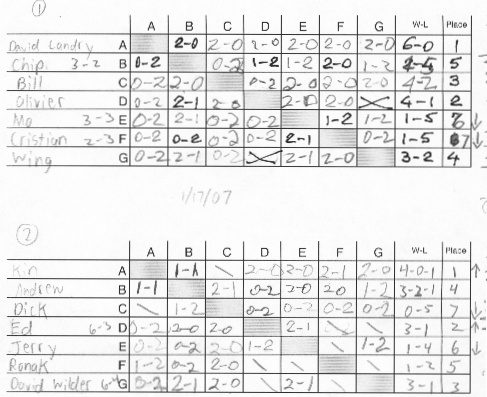 ①
A B C D E F G W-L Place
David Landry A 2-0 2-0 2-0 2-0 2-0 2-0 6-0 1
Chip 3-2 B 0-2 0-2 1-2 1-2 2-0 1-2 5
Bill C 0-2 2-0 0-2 2-0 2-0 2-0 4-2 3
Olivier D 0-2 2-1 2-0 2-0 2-0 4-1 2
Mo 3-3 E 0-2 2-1 0-2 0-2 1-2 1-2 1-5 ↓
Cristian 2-3 F 0-2 0-2 0-2 0-2 2-1 0-2 1-5 7 ↓
Wing G 0-2 2-1 0-2 2-1 2-0 3-2 4
1/17/07
②
A B C D E F G W-L Place
Kin A 1-1 \ 2-0 2-0 2-1 2-0 4-0-1 1 ↑
Andrew B 1-1 2-1 0-2 2-0 2-0 1-2 3-2-1 4
Dick C \ 1-2 0-2 0-2 0-2 0-2 0-5 7 ↓
Ed 6-3 D 0-2 2-0 2-0 2-1 \ \ 3-1 2 ↑
Jerry E 0-2 0-2 2-0 1-2 \ 1-2 1-4 6 ↓
Ronak F 1-2 0-2 2-0 \ \ \ 1-2 5
David Wilder 6-4 G 0-2 2-1 2-0 \ 2-1 \ 3-1 3